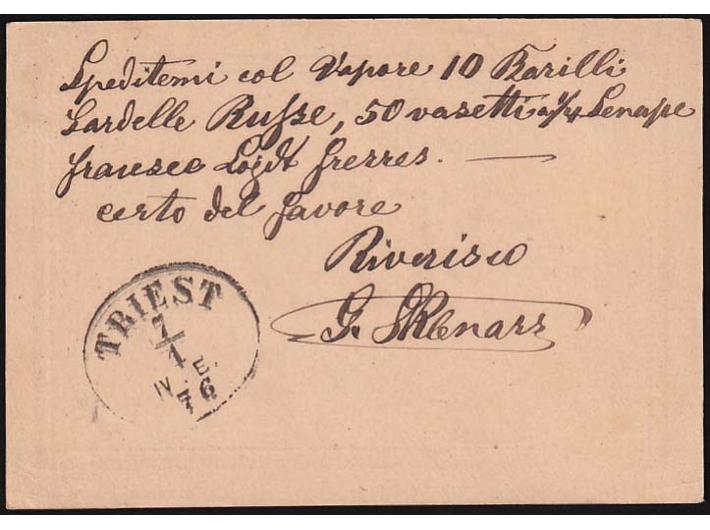 Speditemi col Vapore 10 Barilli
Sardelle Russe, 50 vasetti a 1/4 Senape
francese Lojdt frerres. —
certo del favore
Riverisco
G. Sklenarz
TRIEST
7/1
E.
IV. 76